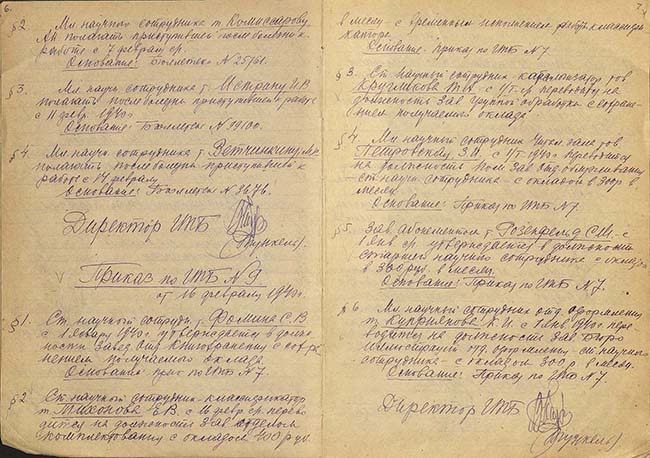 6.
§2 Мл. научного сотрудника т. Комиссарову
А.И. полагать приступившей после болезни к
работе с 7 февраля ср.
Основание: Бюллетень № 25761.
§3. Мл. научн. сотрудника т. Истрину И.В.
полагать после болезни приступившей к работе
с 11 февр. 1940 г.
Основание: Бюллетень № 39100.
§4. Мл. научн. сотрудника т. Ветчинкину
полагать после болезни приступившей к
работе с 14 февраля
Основание: Бюллетень № 3676.
Директор ЦПБ
(Тункель).
Приказ по ЦПБ № 9
от 16 февраля 1940 г.
§1. Ст. научный сотрудн. т. Фомина Е.В.
с 1 января 1940 г. утверждается в долж-
ности Завед. отд. Книгохранения с сохра-
нением получаемого оклада
Основание: прик. по ЦПБ № 7.
§2. Ст. научный сотрудник классификатор
т. Тихонова Е.В. с 16 февр. ср. перево-
дится на должность Зав. отделом
комплектования с окладом 400 руб.
7.
в месяц с временным исполнением работы классифи-
катора.
Основание: Приказ по ЦПБ № 7.
§3. Ст. научный сотрудник каталогизатор тов.
Кругликова с 1/I-ср. переводится на
должность Зав. группой обработки с сохране-
нием получаемого оклада.
§4. Мл. научный сотрудник читал. зала тов.
Петровская З.И. с 1/I-1940 г. переводится
на должность Пом. Зав. отд. обслуживания
ст. научн. сотрудника с окладом в 300 р. в
месяц.
Основание: Приказ по ЦПБ № 7.
§5. Зав. абонементом т. Розенфельд С.М. с
1 янв. ср. утверждается в должности
старшего научного сотрудника с окладом
в 360 руб. в месяц.
Основание: Приказ по ЦПБ № 7.
§6. Мл. научный сотрудник отд. оформления
т. Куприянова К.И. с 1 янв. 1940 г. пере-
водится на должность Зав. бюро
отд. оформления ст. научного
сотрудника с окладом 300 р. в месяц.
Основание: Приказ по ЦПБ № 7.
Директор ЦПБ
(Тункель)